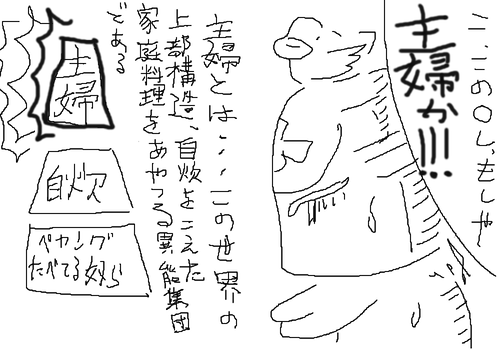 こ、この〇し、もしや
主婦か!!!
主婦とは・・・この世界の
上部構造、自炊をこえた
家庭料理をあやつる異能集団
である
主婦
自炊
ペカング
たべてる奴ら